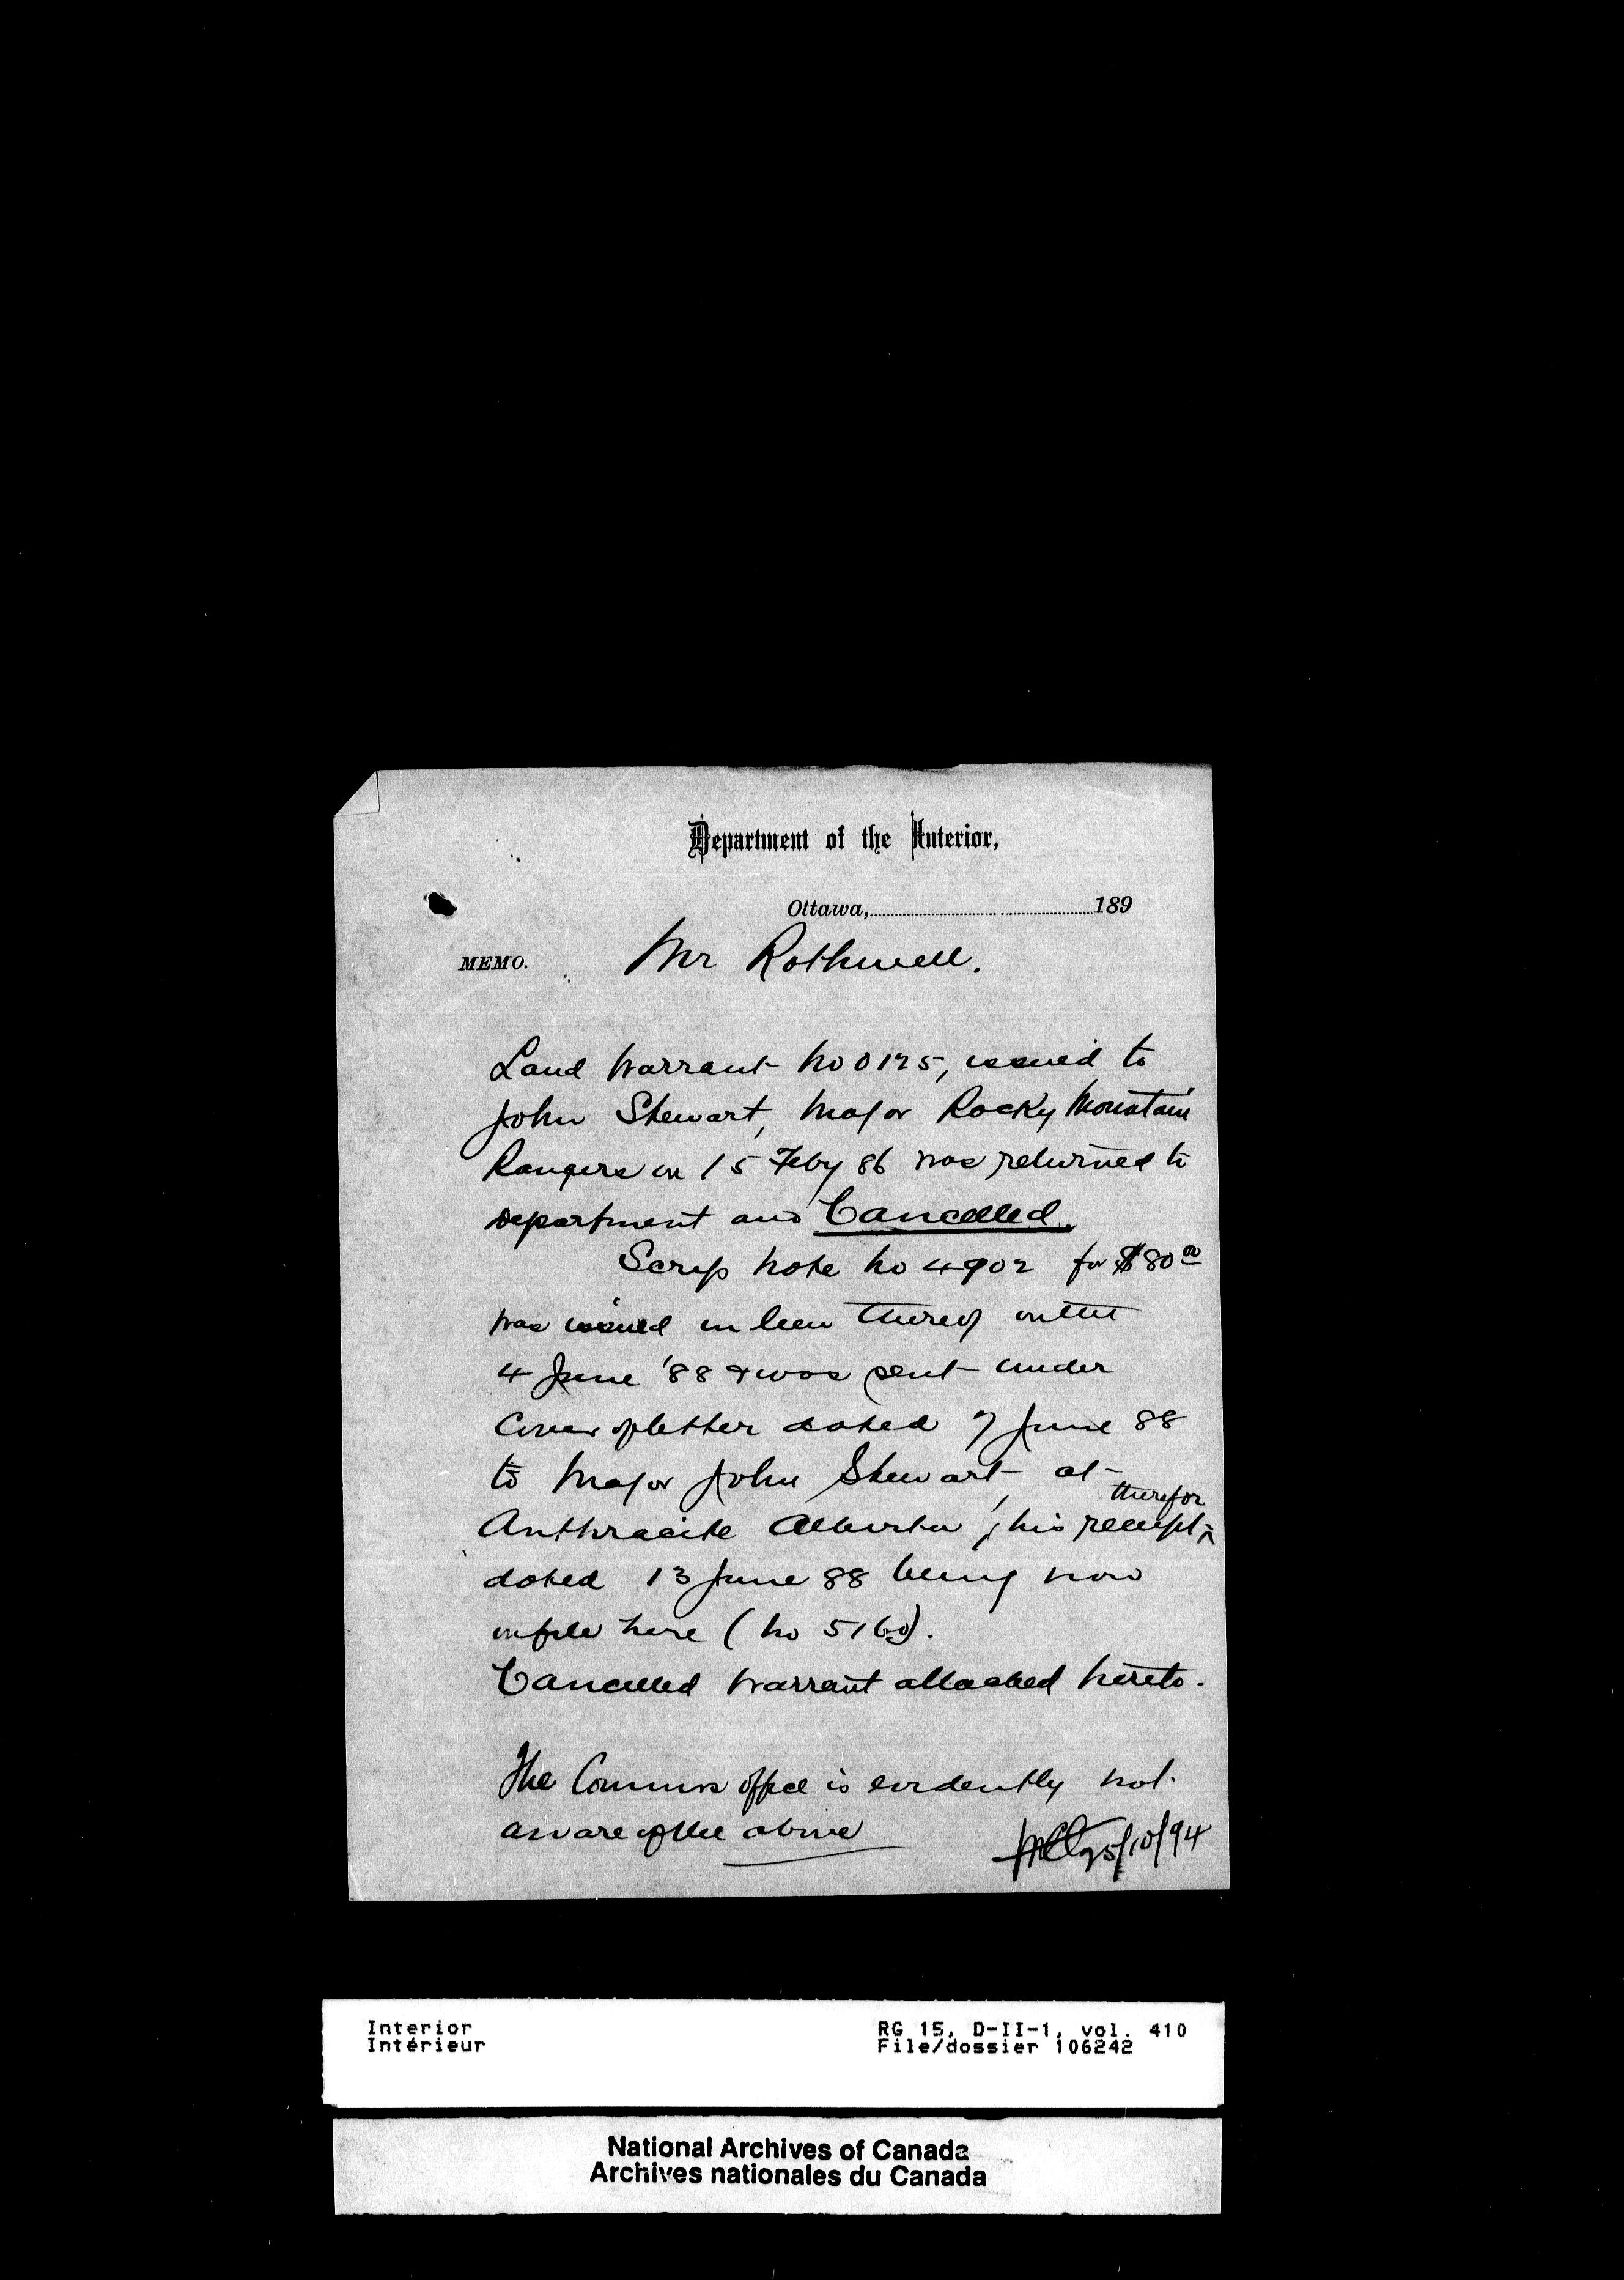 Department of the Interior,
Ottawa, 189
MEMO. Mr Rothwell.
Land Warrant No 0125, issued to
John Stewart, Major Rocky Mountain
Rangers on 15 Feby 86 was returned to
department and Cancelled.
Scrip Note No 4902 for $80.00
was issued in lieu thereof on the
4 June '88 & was sent under
Cover of letter dated 7 June 88
to Major John Stewart at
therefor
Anthracite Alberta, his receipt ^
dated 13 June 88 being now
on file here (No 5160).
Cancelled Warrant attached hereto.
The Commrs office is evidently not
aware of the above
25/10/94
Interior
Intérieur
RG 15, D-II-1, vol. 410
File/dossier 106242
National Archives of Canada
Archives nationales du Canada